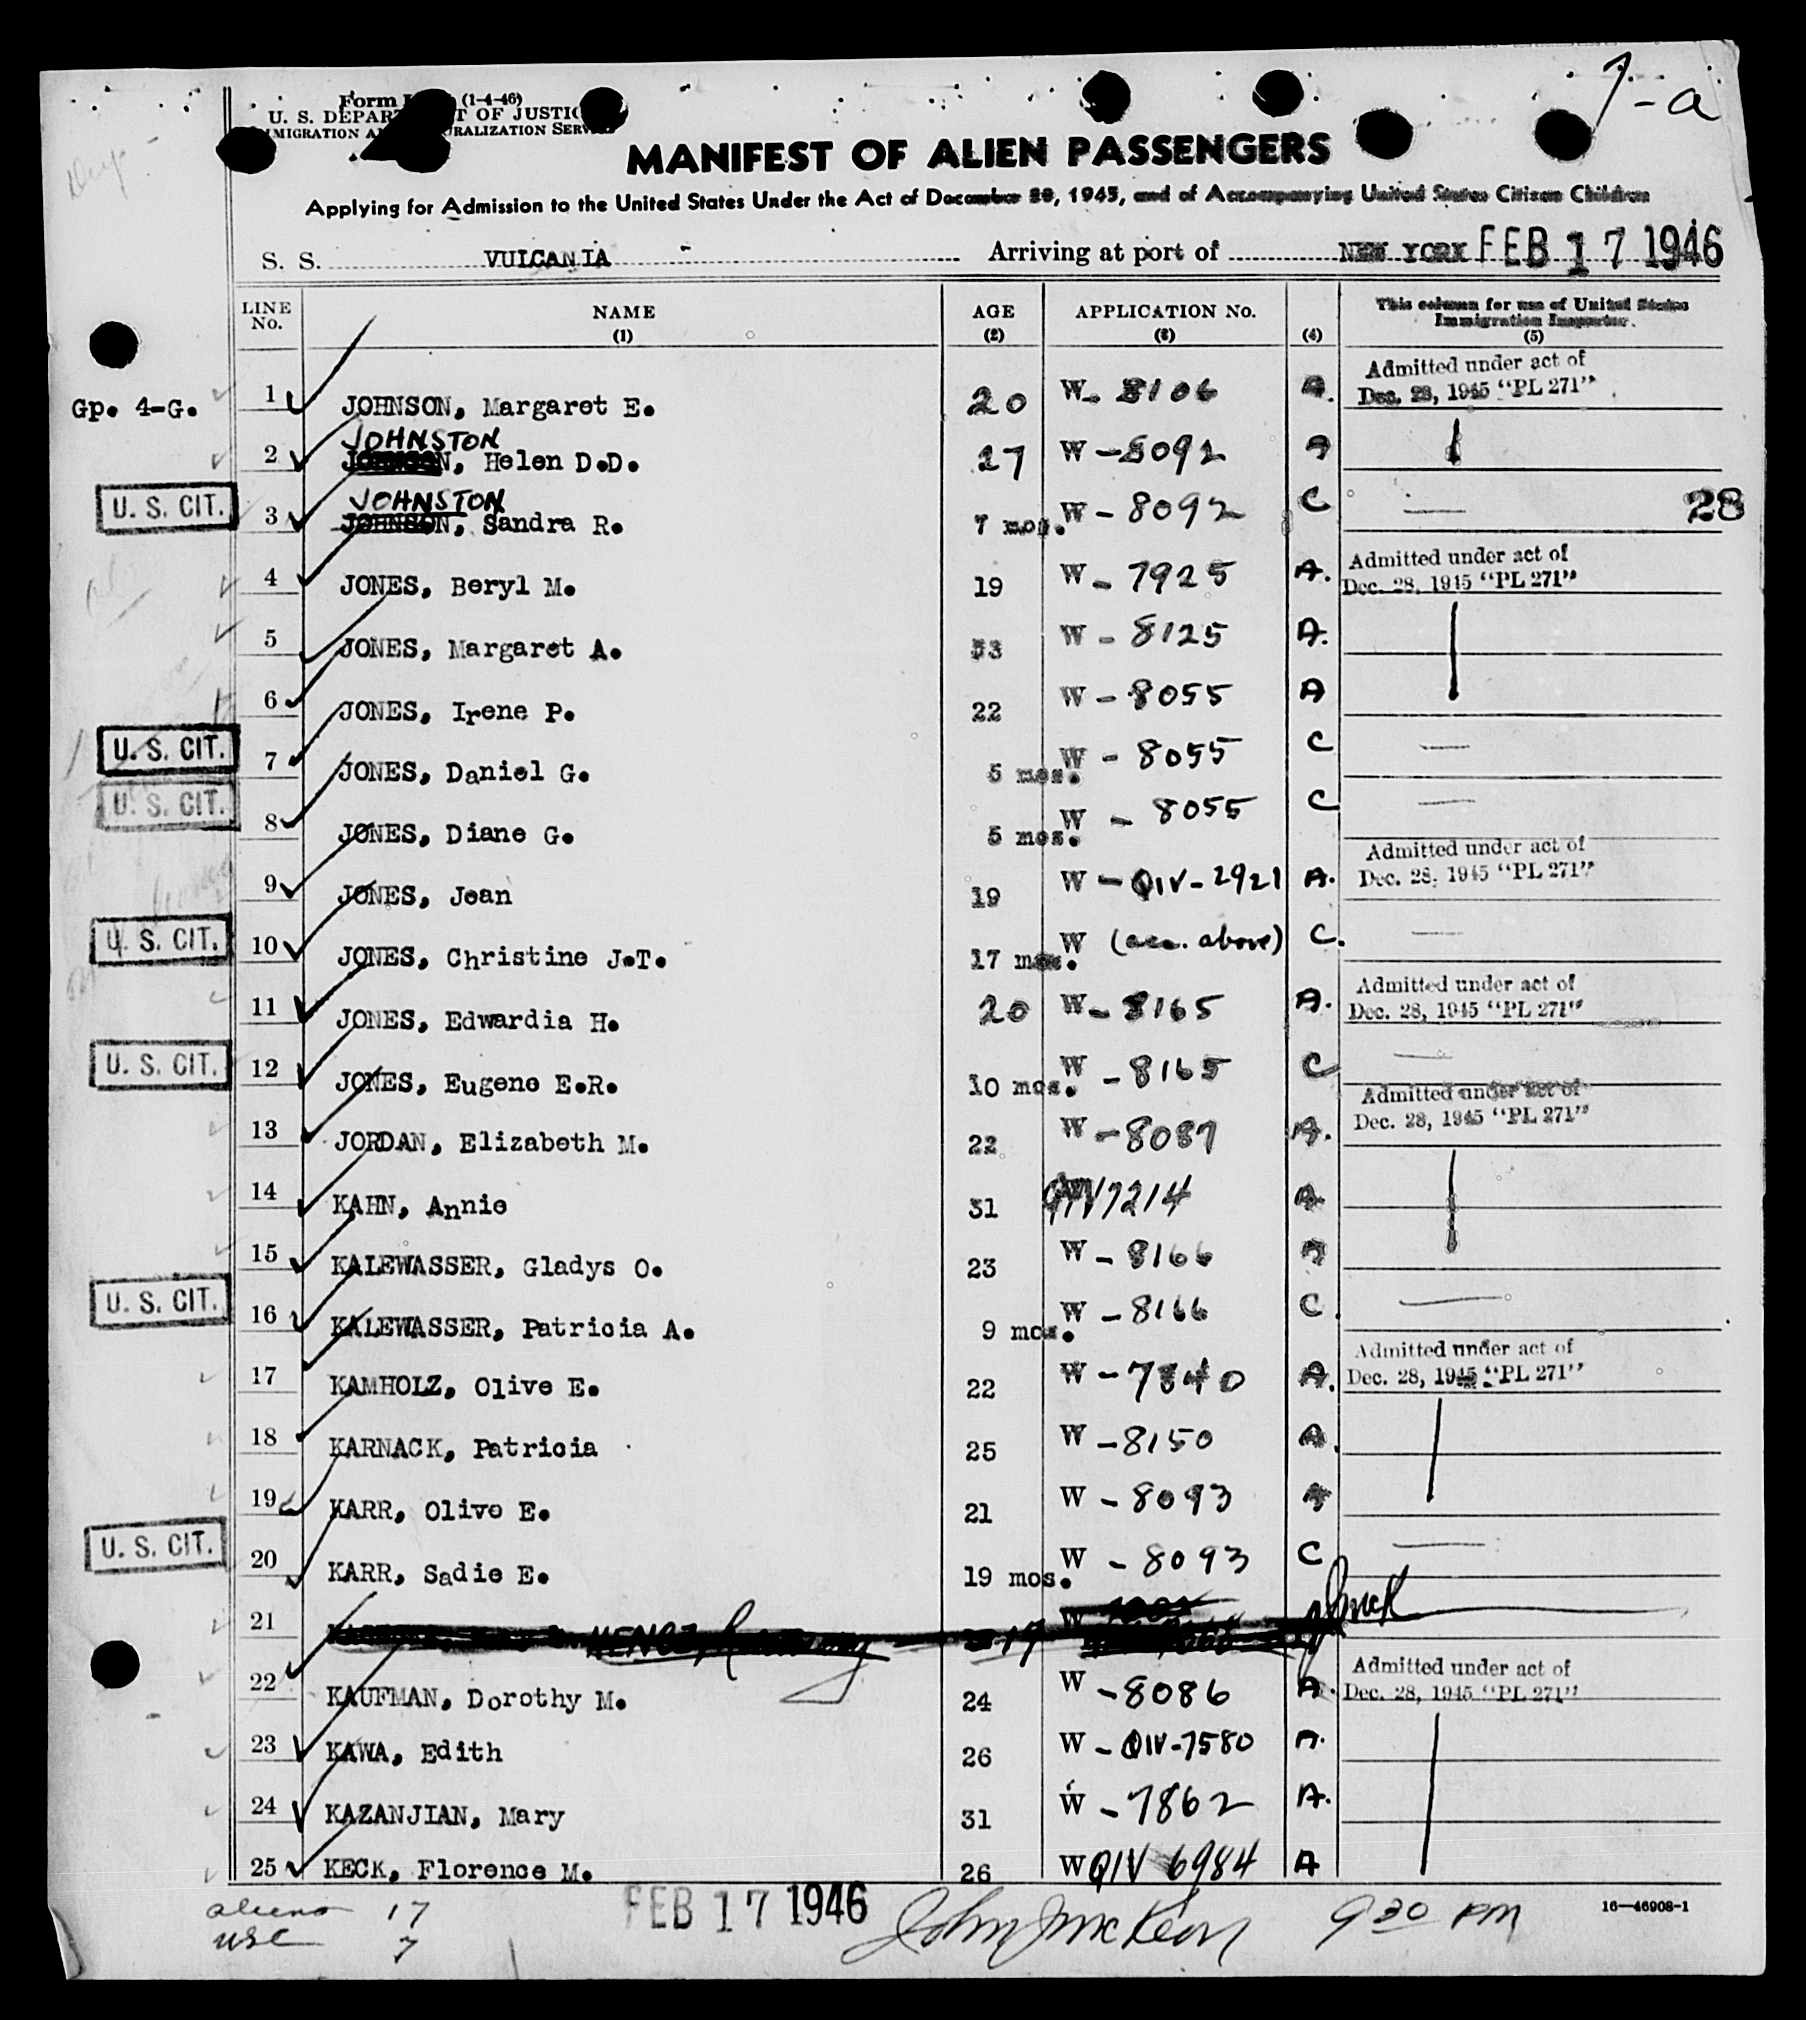 1-a
Form (1-4-46)
U. S. DEPARTMENT OF JUSTICE
IMMIGRATION AND NATURALIZATION SERVICE
MANIFEST OF ALIEN PASSENGERS
Applying for Admission to the United States Under the Act of December 28, 1945, and of Accompanying United States Citizen Children
S. S. VULCANIA - Arriving at port of NEW YORK FEB 17 1946
LINE No. NAME (1) AGE (2) APPLICATION No. (3) (4) This column for use of United States Immigration Inspector. (5)
Gp. 4-G. 1 JOHNSON, Margaret E. 20 W-8106 A. Admitted under act of Dec. 28, 1945 "PL 271"
JOHNSTON
2 JOHNSON, Helen D.D. 27 W-8092 A
JOHNSTON
U. S. CIT. 3 JOHNSON, Sandra R. 7 mos. W-8092 C — 28
4 JONES, Beryl M. 19 W-7925 A. Admitted under act of Dec. 28, 1945 "PL 271"
5 JONES, Margaret A. 33 W-8125 A.
6 JONES, Irene P. 22 W-8055 A
U. S. CIT. 7 JONES, Daniel G. 5 mos. W-8055 C —
U. S. CIT. 8 JONES, Diane G. 5 mos. W-8055 C —
9 JONES, Jean 19 W-QIV-2921 A. Admitted under act of Dec. 28, 1945 "PL 271"
U. S. CIT. 10 JONES, Christine J.T. 17 mos. W (acc. above) C. —
11 JONES, Edwardia H. 20 W-8165 A. Admitted under act of Dec. 28, 1945 "PL 271"
U. S. CIT. 12 JONES, Eugene E.R. 10 mos. W-8165 C —
13 JORDAN, Elizabeth M. 22 W-8087 A. Admitted under act of Dec. 28, 1945 "PL 271"
14 KAHN, Annie 31 QIV7214 A
15 KALEWASSER, Gladys O. 23 W-8166 A
U. S. CIT. 16 KALEWASSER, Patricia A. 9 mos. W-8166 C. —
17 KAMHOLZ, Olive E. 22 W-7840 A. Admitted under act of Dec. 28, 1945 "PL 271"
18 KARNACK, Patricia 25 W-8150 A.
19 KARR, Olive E. 21 W-8093 A
U. S. CIT. 20 KARR, Sadie E. 19 mos. W-8093 C —
21 19 W
22 KAUFMAN, Dorothy M. 24 W-8086 A. Admitted under act of Dec. 28, 1945 "PL 271"
23 KAWA, Edith 26 W-QIV-7580 A.
24 KAZANJIAN, Mary 31 W-7862 A.
25 KECK, Florence M. 26 W QIV 6984 A
aliens 17 FEB 17 1946 John J McKeon 9 30 PM 16—46908-1
USC 7